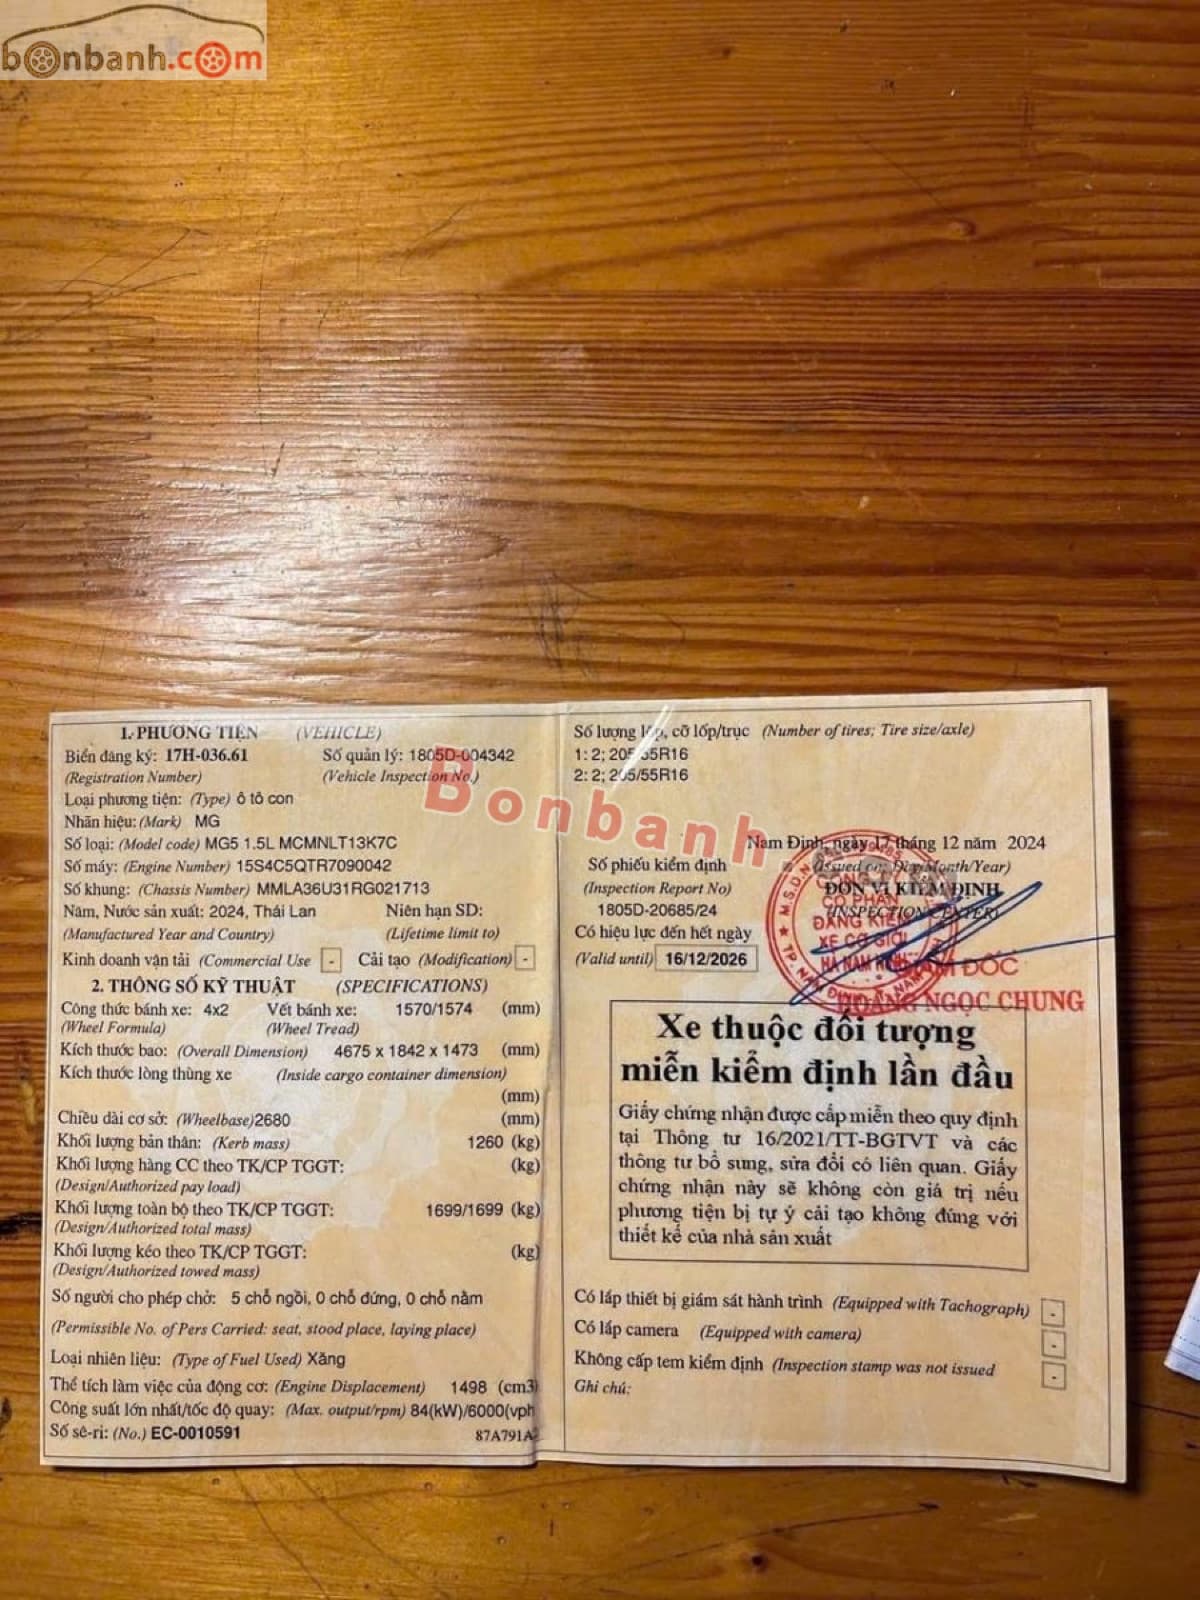 bonbanh.com
1. PHƯƠNG TIỆN (VEHICLE)
Biển đăng ký: 17H-036.61 Số quản lý: 1805D-004342
(Registration Number) (Vehicle Inspection No.)
Loại phương tiện: (Type) ô tô con
Nhãn hiệu: (Mark) MG
Số loại: (Model code) MG5 1.5L MCMNLT13K7C
Số máy: (Engine Number) 15S4C5QTR7090042
Số khung: (Chassis Number) MMLA36U31RG021713
Năm, Nước sản xuất: 2024, Thái Lan Niên hạn SD:
(Manufactured Year and Country) (Lifetime limit to)
Kinh doanh vận tải (Commercial Use - Cải tạo (Modification) -
2. THÔNG SỐ KỸ THUẬT (SPECIFICATIONS)
Công thức bánh xe: 4x2 Vết bánh xe: 1570/1574 (mm)
(Wheel Formula) (Wheel Tread)
Kích thước bao: (Overall Dimension) 4675 x 1842 x 1473 (mm)
Kích thước lòng thùng xe (Inside cargo container dimension)
(mm)
Chiều dài cơ sở: (Wheelbase) 2680 (mm)
Khối lượng bản thân: (Kerb mass) 1260 (kg)
Khối lượng hàng CC theo TK/CP TGGT: (kg)
(Design/Authorized pay load)
Khối lượng toàn bộ theo TK/CP TGGT: 1699/1699 (kg)
(Design/Authorized total mass)
Khối lượng kéo theo TK/CP TGGT: (kg)
(Design/Authorized towed mass)
Số người cho phép chở: 5 chỗ ngồi, 0 chỗ đứng, 0 chỗ nằm
(Permissible No. of Pers Carried: seat, stood place, laying place)
Loại nhiên liệu: (Type of Fuel Used) Xăng
Thể tích làm việc của động cơ: (Engine Displacement) 1498 (cm3)
Công suất lớn nhất/tốc độ quay: (Max. output/rpm) 84(kW)/6000(vph
Số sê-ri: (No.) EC-0010591 87A791A
Số lượng lốp, cỡ lốp/trục (Number of tires; Tire size/axle)
1: 2; 205/55R16
2: 2; 205/55R16
Bonbanh
Nam Định, ngày 17 tháng 12 năm 2024
Số phiếu kiểm định (Issued on: Day/Month/Year)
(Inspection Report No) ĐƠN VỊ KIỂM ĐỊNH
1805D-20685/24 (INSPECTION CENTER)
Có hiệu lực đến hết ngày
(Valid until) 16/12/2026
CÔNG TY
CỔ PHẦN
ĐĂNG KIỂM
XE CƠ GIỚI
GIÁM ĐỐC
HOÀNG NGỌC CHUNG
Xe thuộc đối tượng
miễn kiểm định lần đầu
Giấy chứng nhận được cấp miễn theo quy định
tại Thông tư 16/2021/TT-BGTVT và các
thông tư bổ sung, sửa đổi có liên quan. Giấy
chứng nhận này sẽ không còn giá trị nếu
phương tiện bị tự ý cải tạo không đúng với
thiết kế của nhà sản xuất
Có lắp thiết bị giám sát hành trình (Equipped with Tachograph) -
Có lắp camera (Equipped with camera) -
Không cấp tem kiểm định (Inspection stamp was not issued -
Ghi chú: